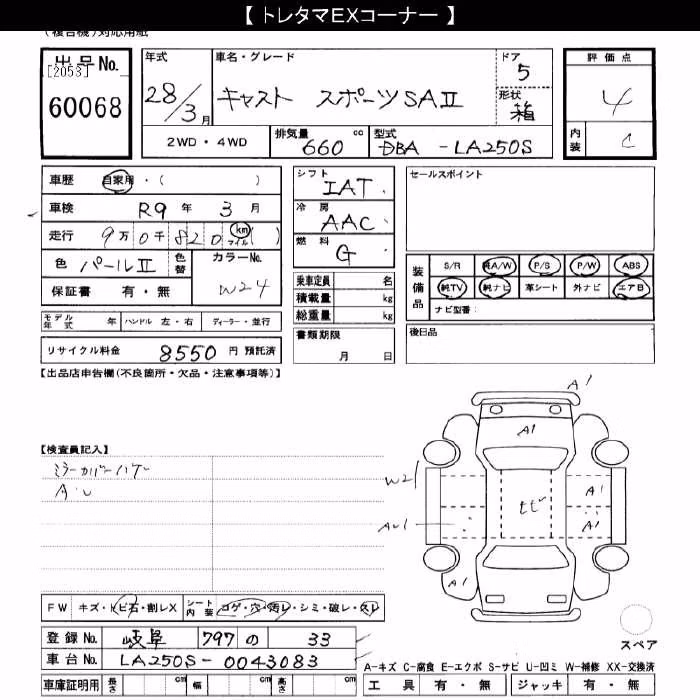 【 トレタマEXコーナー 】
(複合機)対応用紙
出品No.
[2053]
60068
年式 28/3月
車名・グレード キャスト スポーツSAⅡ
ドア 5
形状 箱
2WD・4WD
排気量 660 cc
型式 DBA - LA250S
評価点 4
内装 C
車歴 自家用・( )
車検 R9年 3月
走行 9万0千820 (km マイル)
色 パールⅡ 色替
カラーNo. W24
保証書 有・無
モデル年式 年 ハンドル 左・右 ディーラー・並行
リサイクル料金 8550 円 預託済
シフト IAT
冷房 AAC
燃料 G
乗車定員 名
積載量 kg
総重量 kg
書類期限
月 日
セールスポイント
装備品
S/R 純A/W P/S P/W ABS
純TV 純ナビ 革シート 外ナビ エアB
ナビ型番:
後日品
【出品店申告欄(不良箇所・欠品・注意事項等)】
【検査員記入】
ミラーカバーハゲ
A.U
A1
A1
W2
AU1
ヒビ
A1
A1
A1
FW キズ・トビ石・割レX
シート内装 コゲ・穴・汚レ・シミ・破レ・スレ
登録No. 岐阜 797 の 33
車台No. LA250S-0043083
スペア
A-キズ C-腐食 E-エクボ S-サビ U-凹ミ W-補修 XX-交換済
車庫証明用 長さ cm 幅 cm 高さ cm
工具 有・無 ジャッキ 有・無